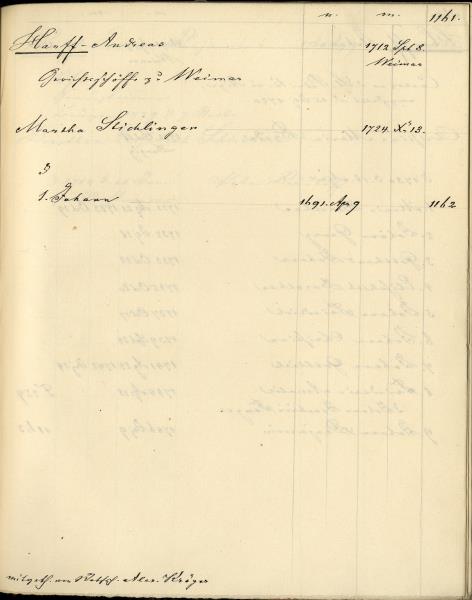 n. m. 1161.
Hanff - Andreas 1712 Spt 8.
Weimar
Gerichtsschöffe zu Weimar
Martha Stichlinger 1724. X. 13.
1. Johann 1691. Apr 9 1162
mitgeth. von Alex. Kröger